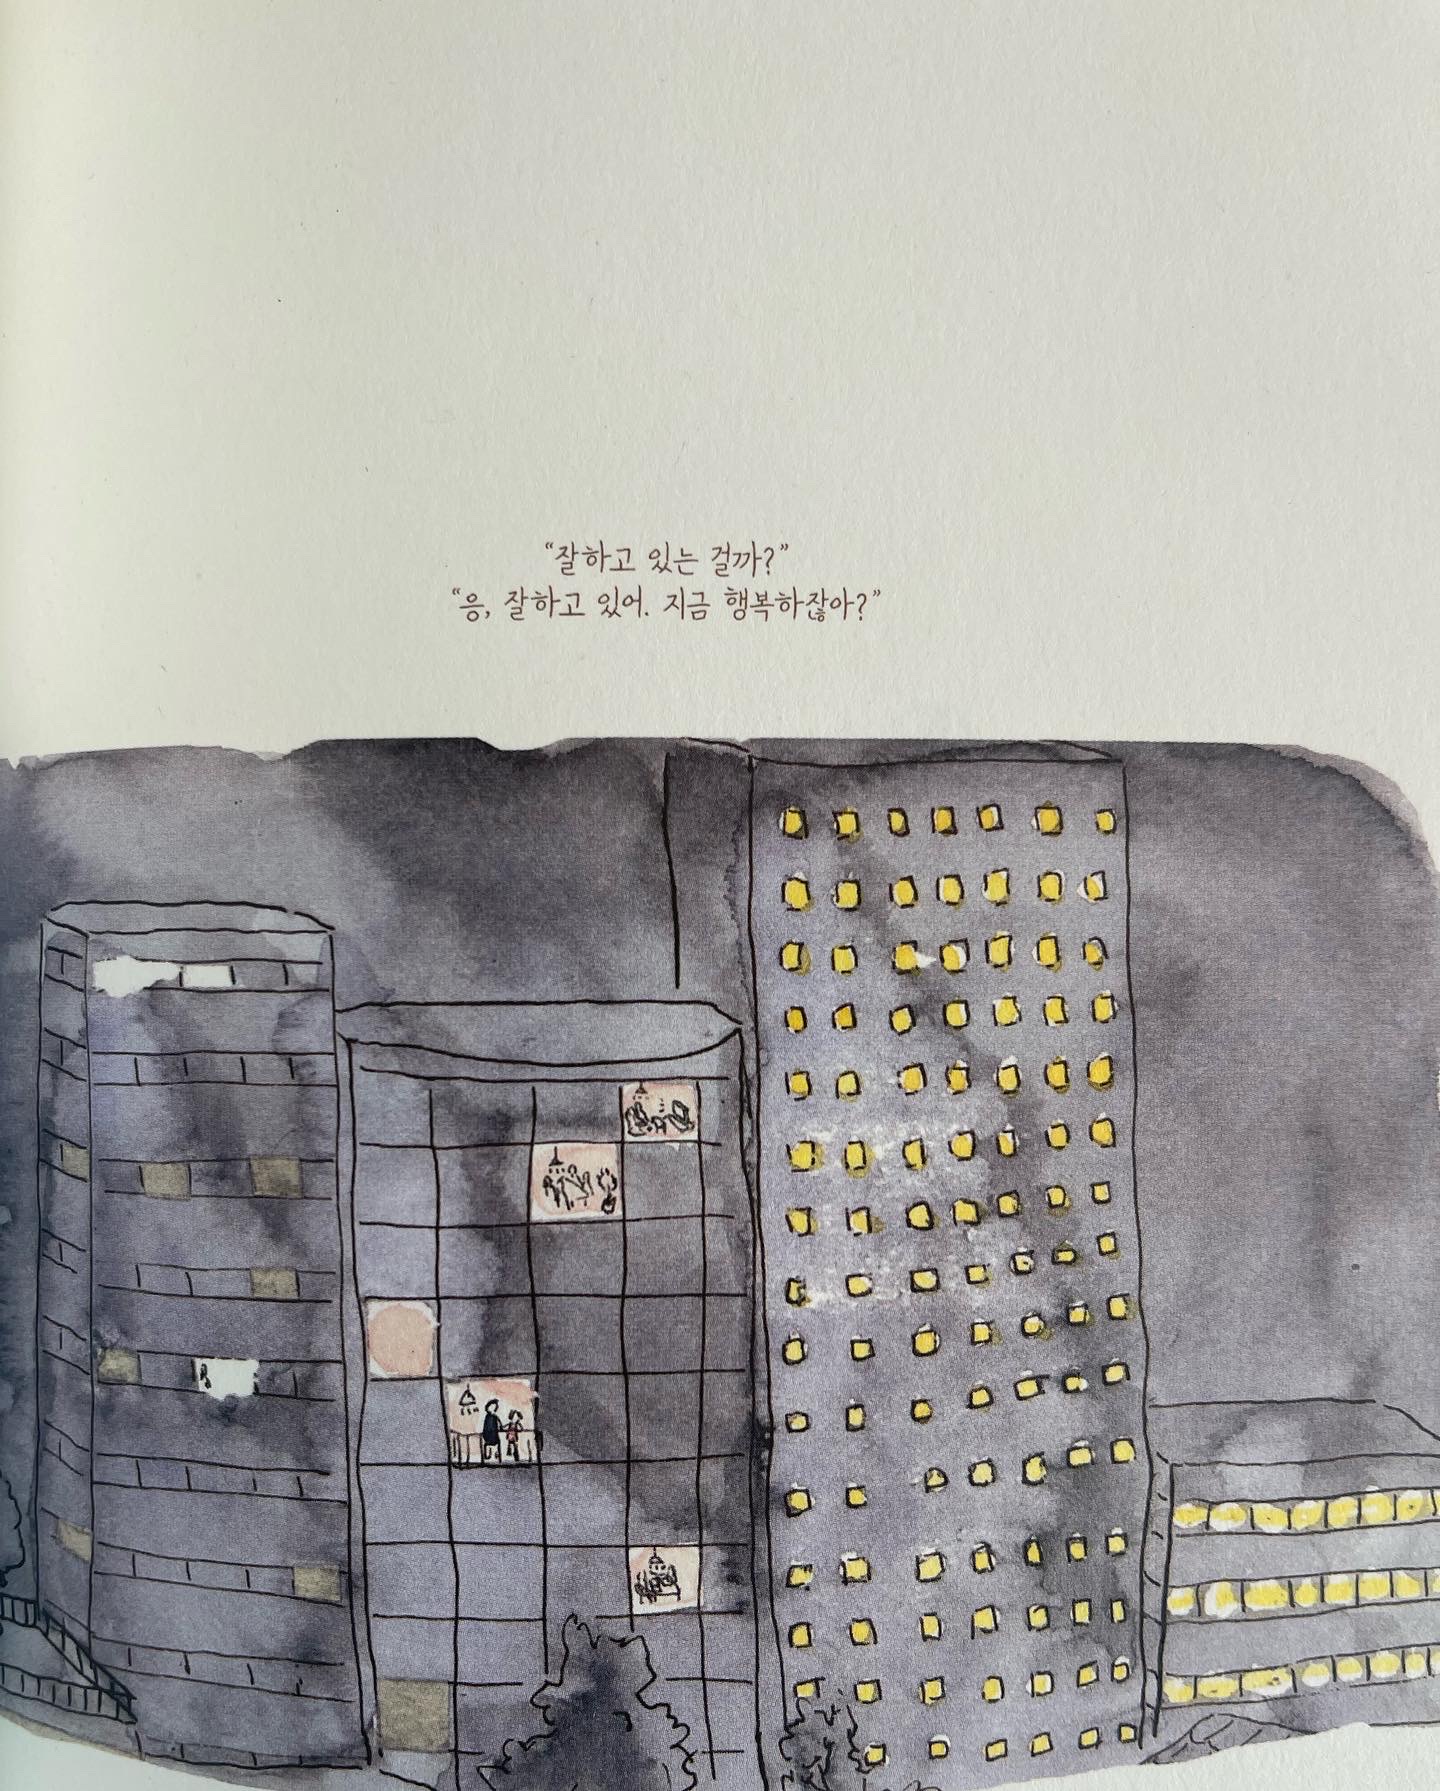 “잘하고 있는 걸까?”
“응, 잘하고 있어. 지금 행복하잖아?”